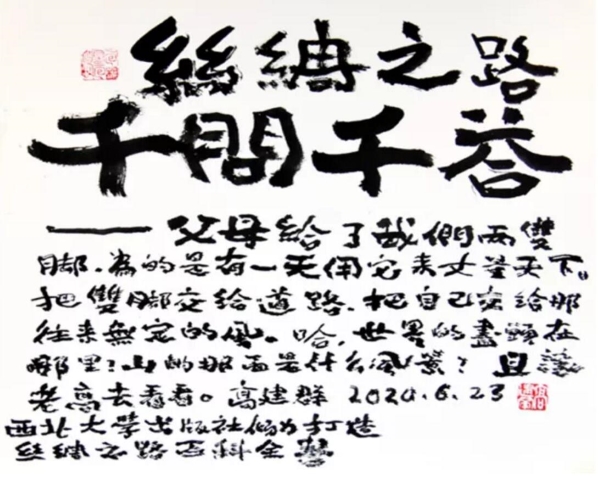 絲綢之路
千問千荅
——父母給了我們兩雙
脚，為的是有一天用它来丈量天下。
把雙脚交給道路，把自己交給那
往来無定的風。哈，世界的盡頭在
哪里？山的那面是什么風景？且讓
老高去看看。高建群 2020.6.23
西北大學出版社傾力打造
絲綢之路百科全書